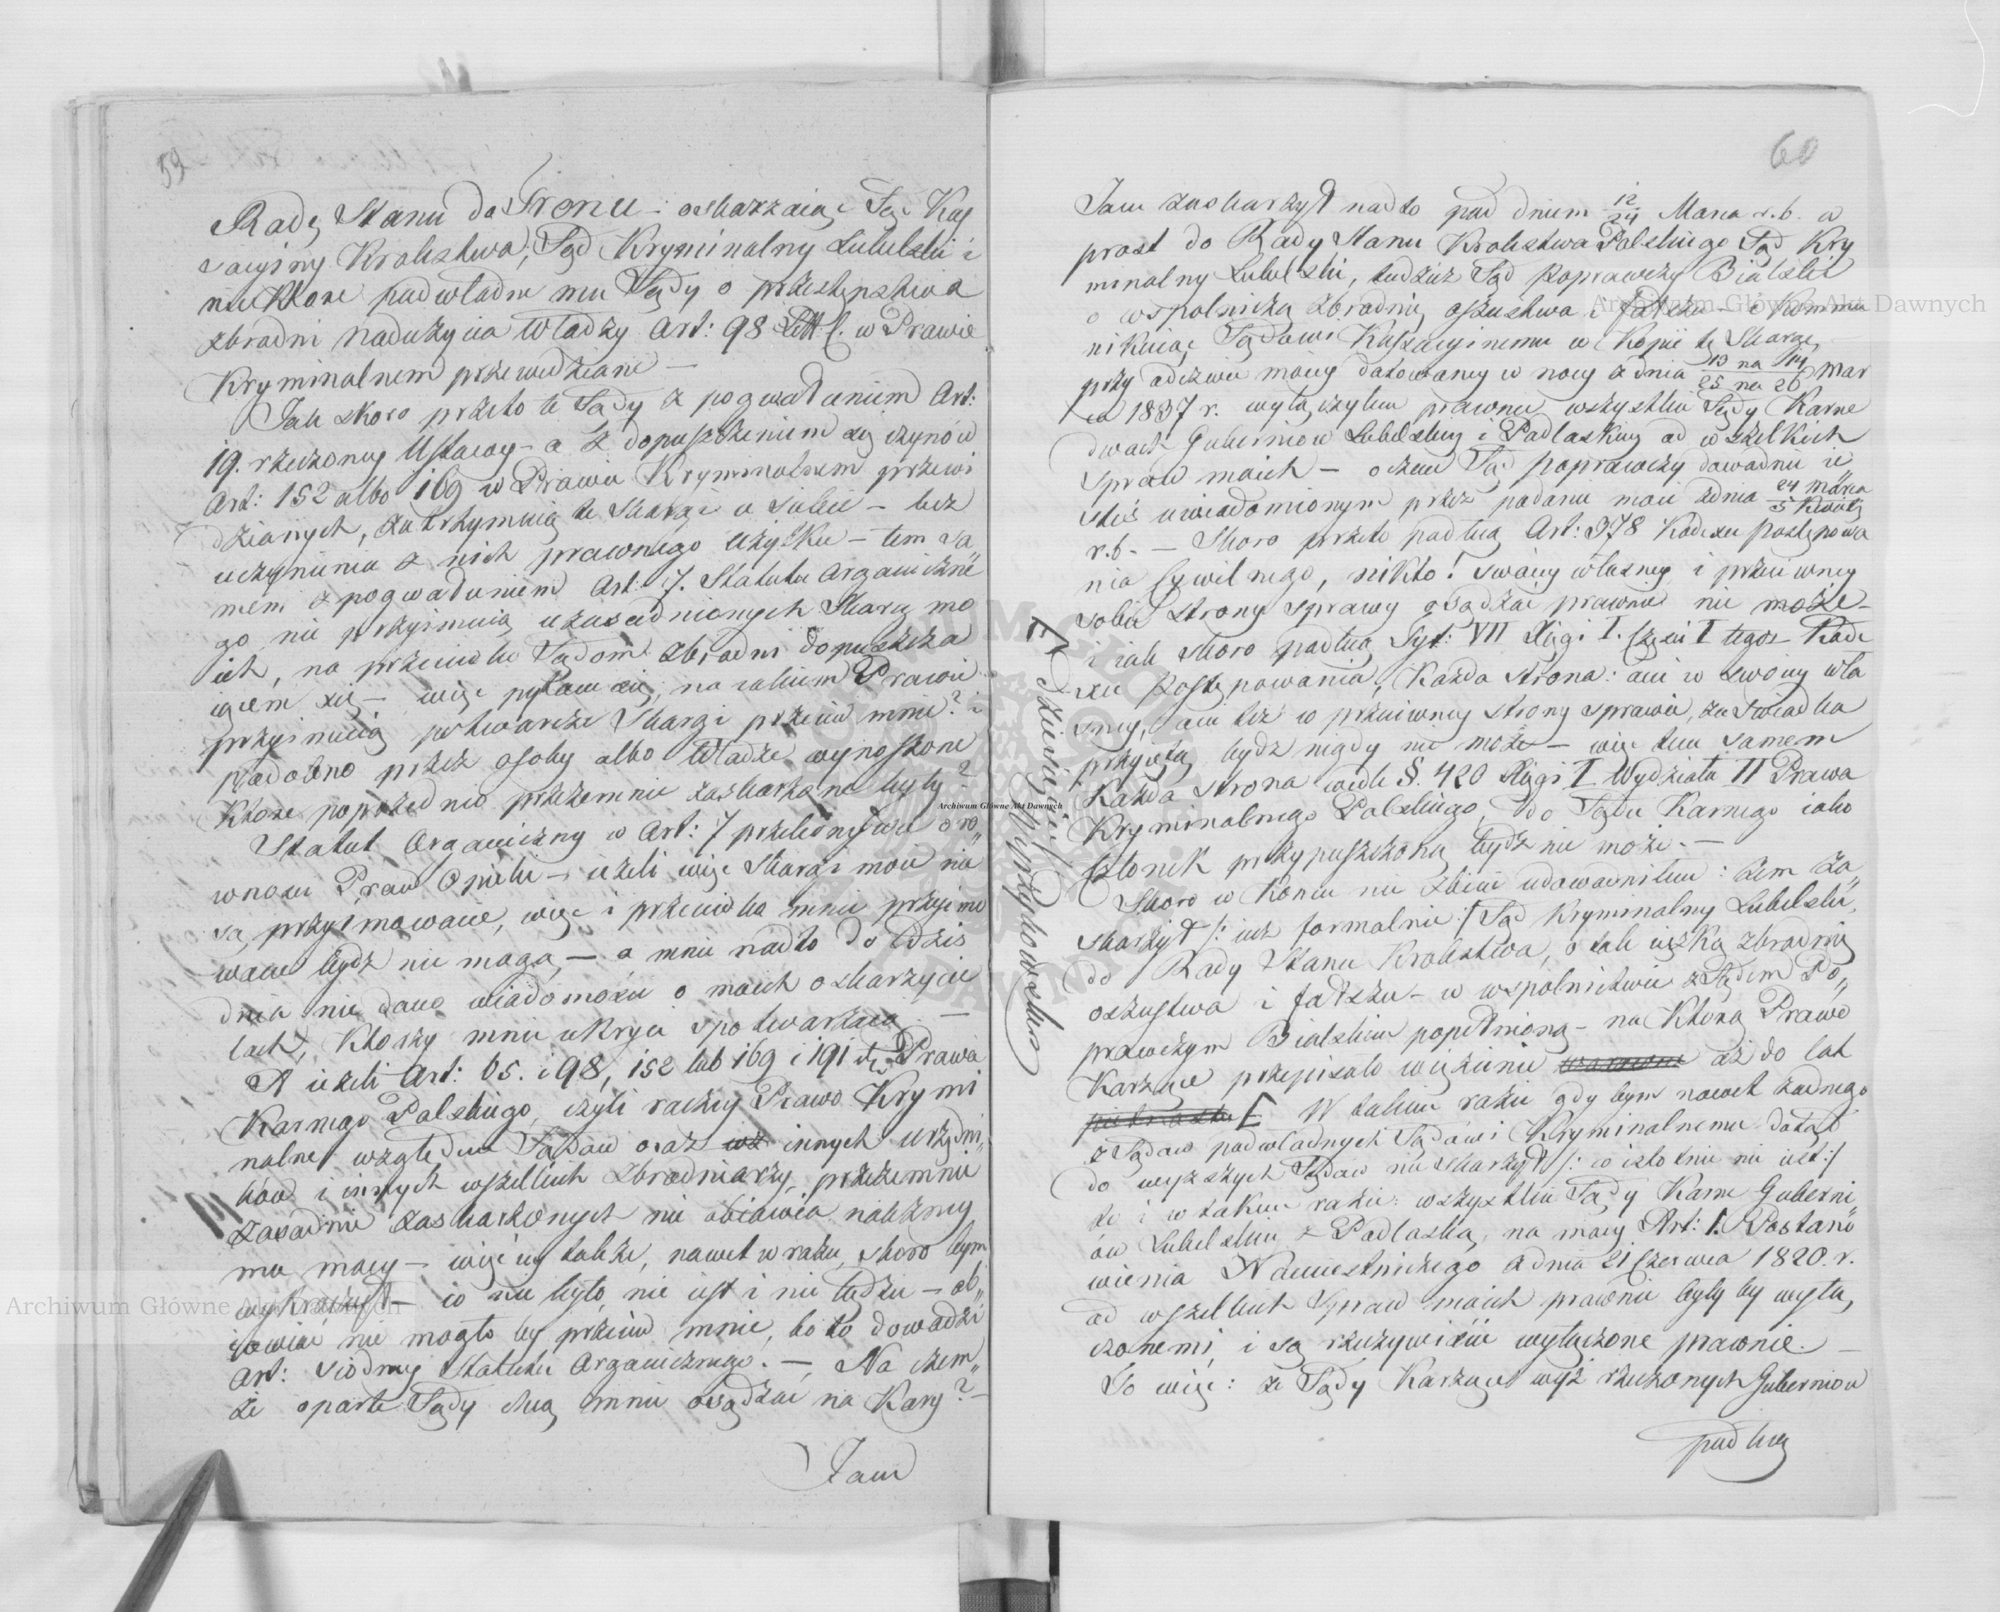 59
Radę Stanu do Tronu – oskarzaiąc Sąd Kas
sacyiny Krolestwa; Sąd Kryminalny Lubelski i
niektore podwładne mu Sądy o przestępstwa
zbrodni nadużycia władzy Art: 98 Litt. C. w Prawie
Kryminalnem przewidziane –
Jak skoro przeto te Sądy z pogwałceniem Art:
19. rzeczoney Ustawy – a z dopuszczeniem się czynów
Art: 152 albo 169 w Prawie Kryminalnem przewi
dzianych, zatrzymuią te Skargi u siebie – bez
uczynienia z nich prawnego użytku – tem sa„
mem z pogwałceniem Art: 7. Statutu Organiczne
go nie przyimuią uzasadnionych Skarg mo
ich, na przeciwko Sądom zbrodni dopuszcza
iącem się – więc pytam się, na iakiem Prawie
przyimuią potwarcze Skargi przeciw mnie? i
podobno przez osoby albo Władze wynoszone
Ktore poprzednio przezemnie zaskarżone były?
Statut Organiczny w Art: 7 przekonywa o ro„
wnosci Praw Opieki – ieżeli więc Skargi moie nie
są przyimowane, więc i przeciwko mnie przyimo
wane bydz nie mogą, – a mnie nadto do dziś
dnia nie dano wiadomosci o moich oskarzycie
lach, Ktorzy mnie ukryci spotwarzaią. –
A ieżeli Art: 65. i 98, 152 lub 169 i 191 te Prawa
Karnego Polskiego, czyli raczey Prawo Krymi
nalne względem Sądów oraz innych urzędni„
ków i innych wszelkich Zbrodniarzy, przezemnie
zasadnie zaskarżonych nie obiawia należney
mu mocy – więc iey także, nawet w razie, skoro bym
wykroczył – co nie było, nie iest i nie będzie – ob„
iawiać nie mogło by przeciw mnie, bo to dowodzi
Art: siodmy Statutu Organicznego. – Na czem„
że oparte Sądy chcą mnie osądzać na Karę? –
Jam
60
Jam zaskarżył nadto pod dniem 12/24 Marca r.b. w
prost do Rady Stanu Krolestwa Polskiego Sąd Kry
minalny Lubelski, tudzież Sąd Poprawczy Bialski
o wspolniczą zbrodnię oszustwa i fałszu – i Kommu
nikuiąc Sądowi Kassacyinemu w Kopii te Skargę,
przy odezwie moiey datowaney w nocy z dnia 13 na 14/25 na 26 Mar
ca 1837 r. wyłączyłem prawnie wszystkie Sądy Karne
dwoch Guberniow Lubelskiey i Podlaskiey od wszelkich
spraw moich – o czem Sąd poprawczy dowodnie ie
steś uwiadomionym przez podanie moie z dnia 24 Marca/5 Kwiet:
r.b. – Skoro przeto podług Art: 378 Kodexu postępowa
nia Cywilnego, nikto! swoiey własney i przeciwney
sobie strony sprawy osądzać prawnie nie może –
i iak skoro podług Tyt: VII Xięgi I. Części I tegoz Kode
xu Postępowania, Każda strona: ani w swoiey wła
sney, ani też w przeciwney strony sprawie, za świadka
przyiętą bydz nigdy nie może – więc tem samem
Każda strona wedle §. 420 Xięgi I Wydziału II Prawa
Kryminalnego Polskiego, do Sądu Karnego iako
członek przypuszczoną bydź nie może. –
Skoro w Koncu nie zbicie udowodniłem: żem za„
skarżył /: iuż formalnie :/ Sąd Kryminalny Lubelski,
do Rady Stanu Krolestwa, o tak ciężką zbrodnię
oszustwa i fałszu – w wspolnictwie z Sądem Po„
prawczym Bialskim popełnioną – na Ktorą Prawo
Karzące przepisało więzienie aż do lat
[ W takim razie gdy bym nawet żadnego
z Sądow podwładnych Sądowi Kryminalnemu dotąd
do wyższych Sądow nie skarżył /: co istotnie nie iest :/
to i w takim razie: wszystkie Sądy Karne Guberni
ów Lubelskiey i Podlaskiey, na mocy Art: 1. Postano
wienia Namiestniczego z dnia 21 Czerwca 1820. r.
od wszelkich Spraw moich prawnie były by wyłą„
czonemi, i są rzeczywiście wyłączone prawnie. –
To więc: że Sądy Karzące wyż rzeczonych Guberniow
podług